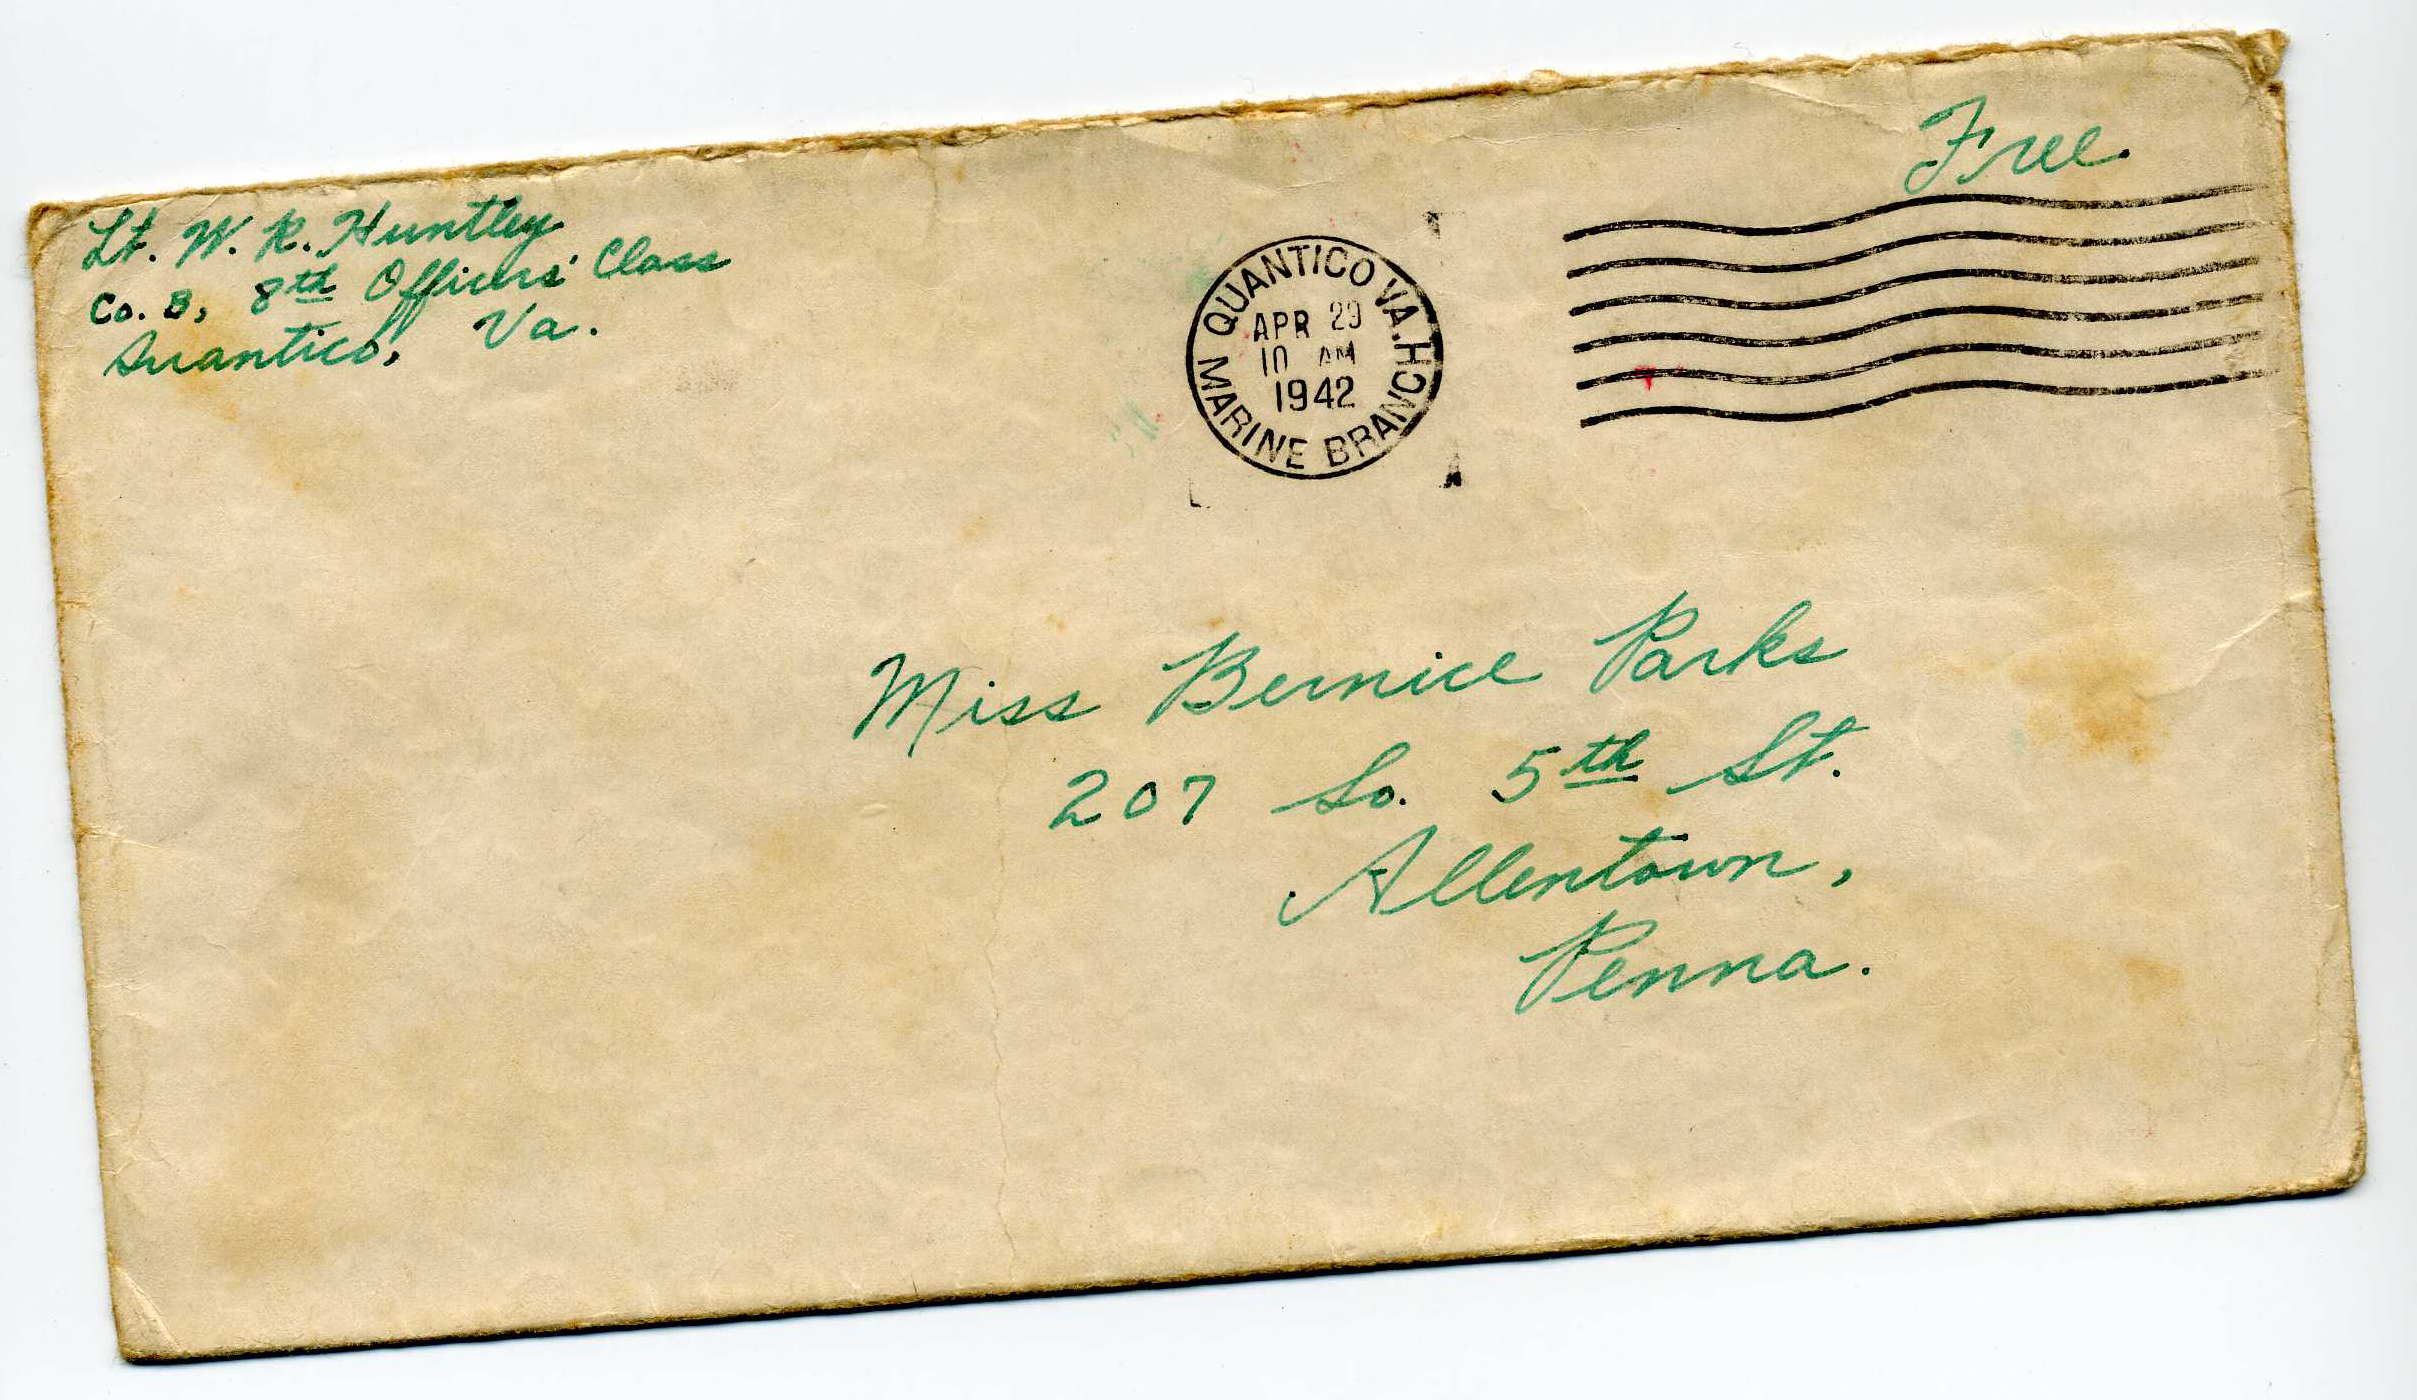 Free.
Lt. W. R. Huntley
Co. B, 8th Officers' Class
Quantico, Va.
QUANTICO VA.
APR 29
10 AM
1942
MARINE BRANCH
Miss Bernice Parks
207 So. 5th St.
Allentown,
Penna.